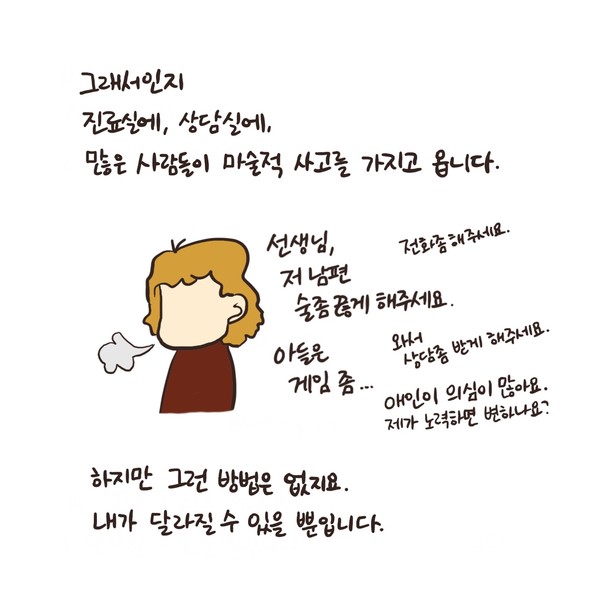 그래서인지
진료실에, 상담실에,
많은 사람들이 마술적 사고를 가지고 옵니다.
선생님,
저 남편
술좀 끊게 해주세요.
전화좀해주세요.
아들은
게임 좀...
와서
상담좀 받게 해주세요.
애인이 의심이 많아요.
제가 노력하면 변하나요?
하지만 그런 방법은 없지요.
내가 달라질 수 있을 뿐입니다.